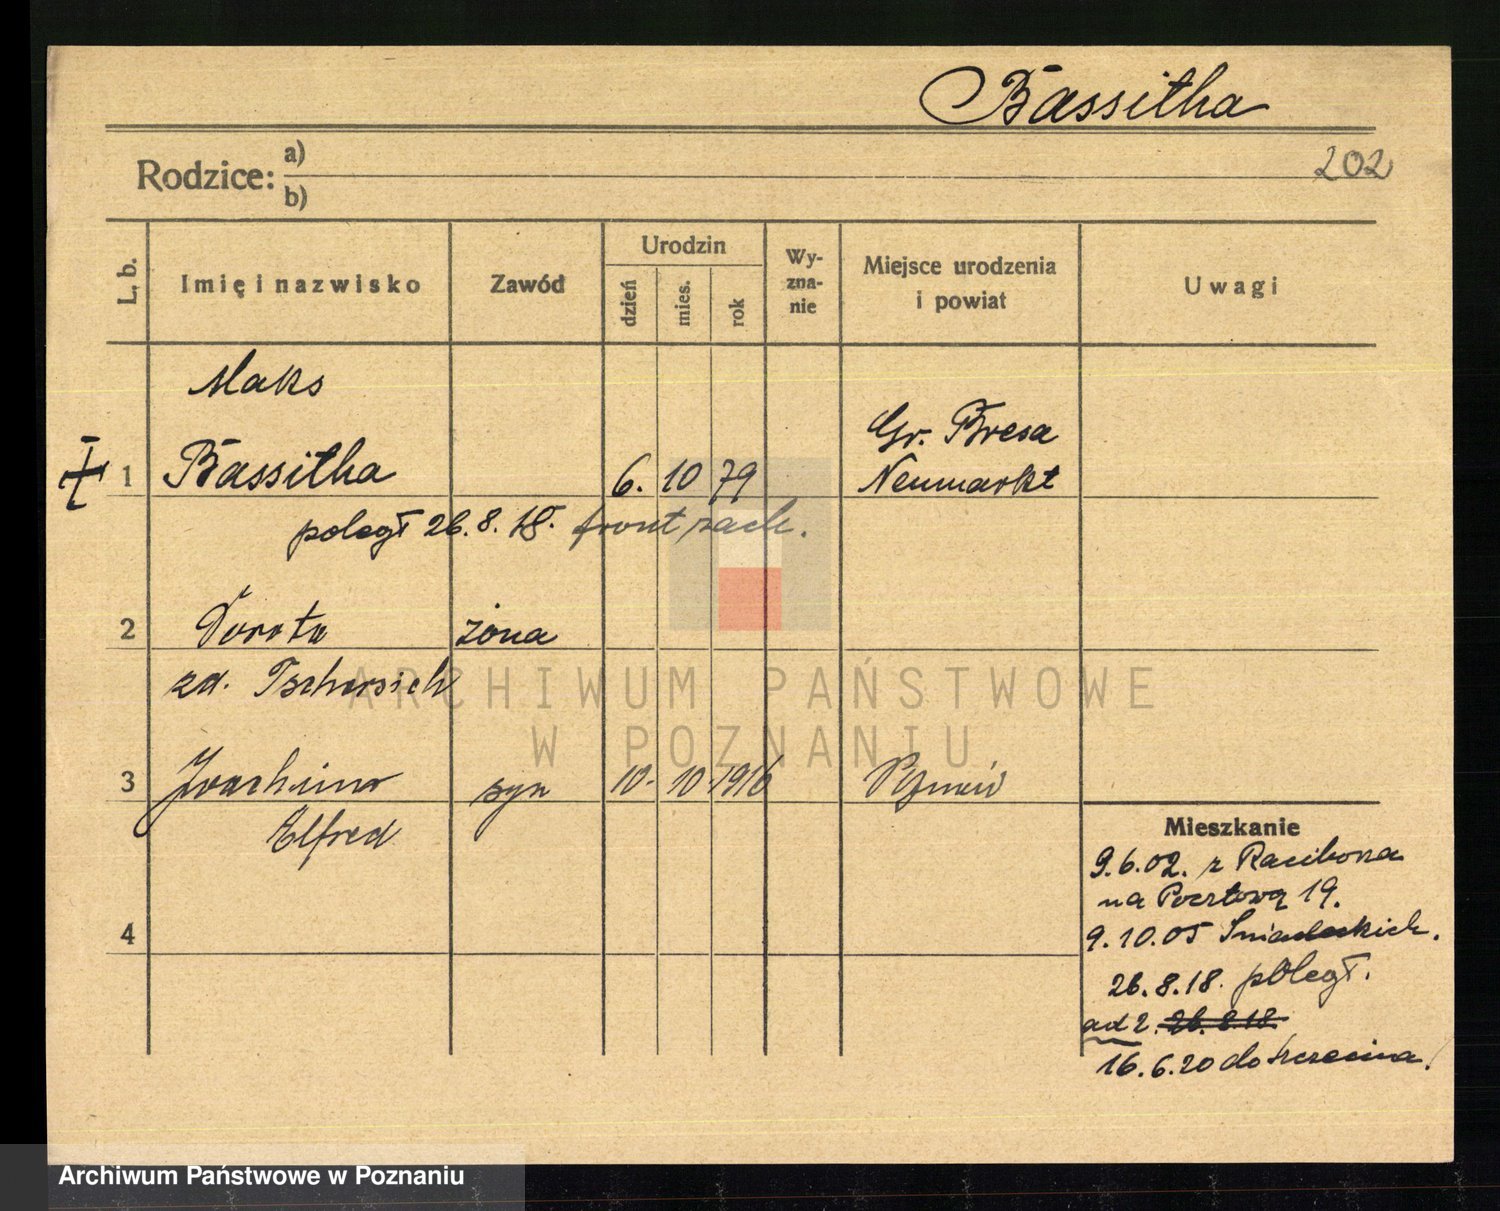 Bassitha
202
Rodzice: a)
b)
L. b.
Imię i nazwisko
Zawód
Urodzin
dzień
mies.
rok
Wy-
zna-
nie
Miejsce urodzenia
i powiat
Uwagi
Maks
1 Bassitha 6. 10 79 Gr. Bresa
Neumarkt
poległ 26. 8. 18. front zach.
2 Dorota żona
zd. Tschersich
3 Joachim syn 10. 10. 1916 Poznań
Alfred
4
Mieszkanie
9.6.02. z Raciborza
na Pocztową 19.
9.10.05 Śniadeckich.
26.8.18. poległ.
ad 2. 26.8.18.
16.6.20 do Szczecina.
ARCHIWUM PAŃSTWOWE
W POZNANIU
Archiwum Państwowe w Poznaniu